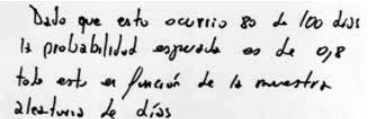 Dado que esto ocurrio 80 de 100 dias
la probabilidad esperada es de 0,8
todo esto en función de la muestra
aleatoria de días